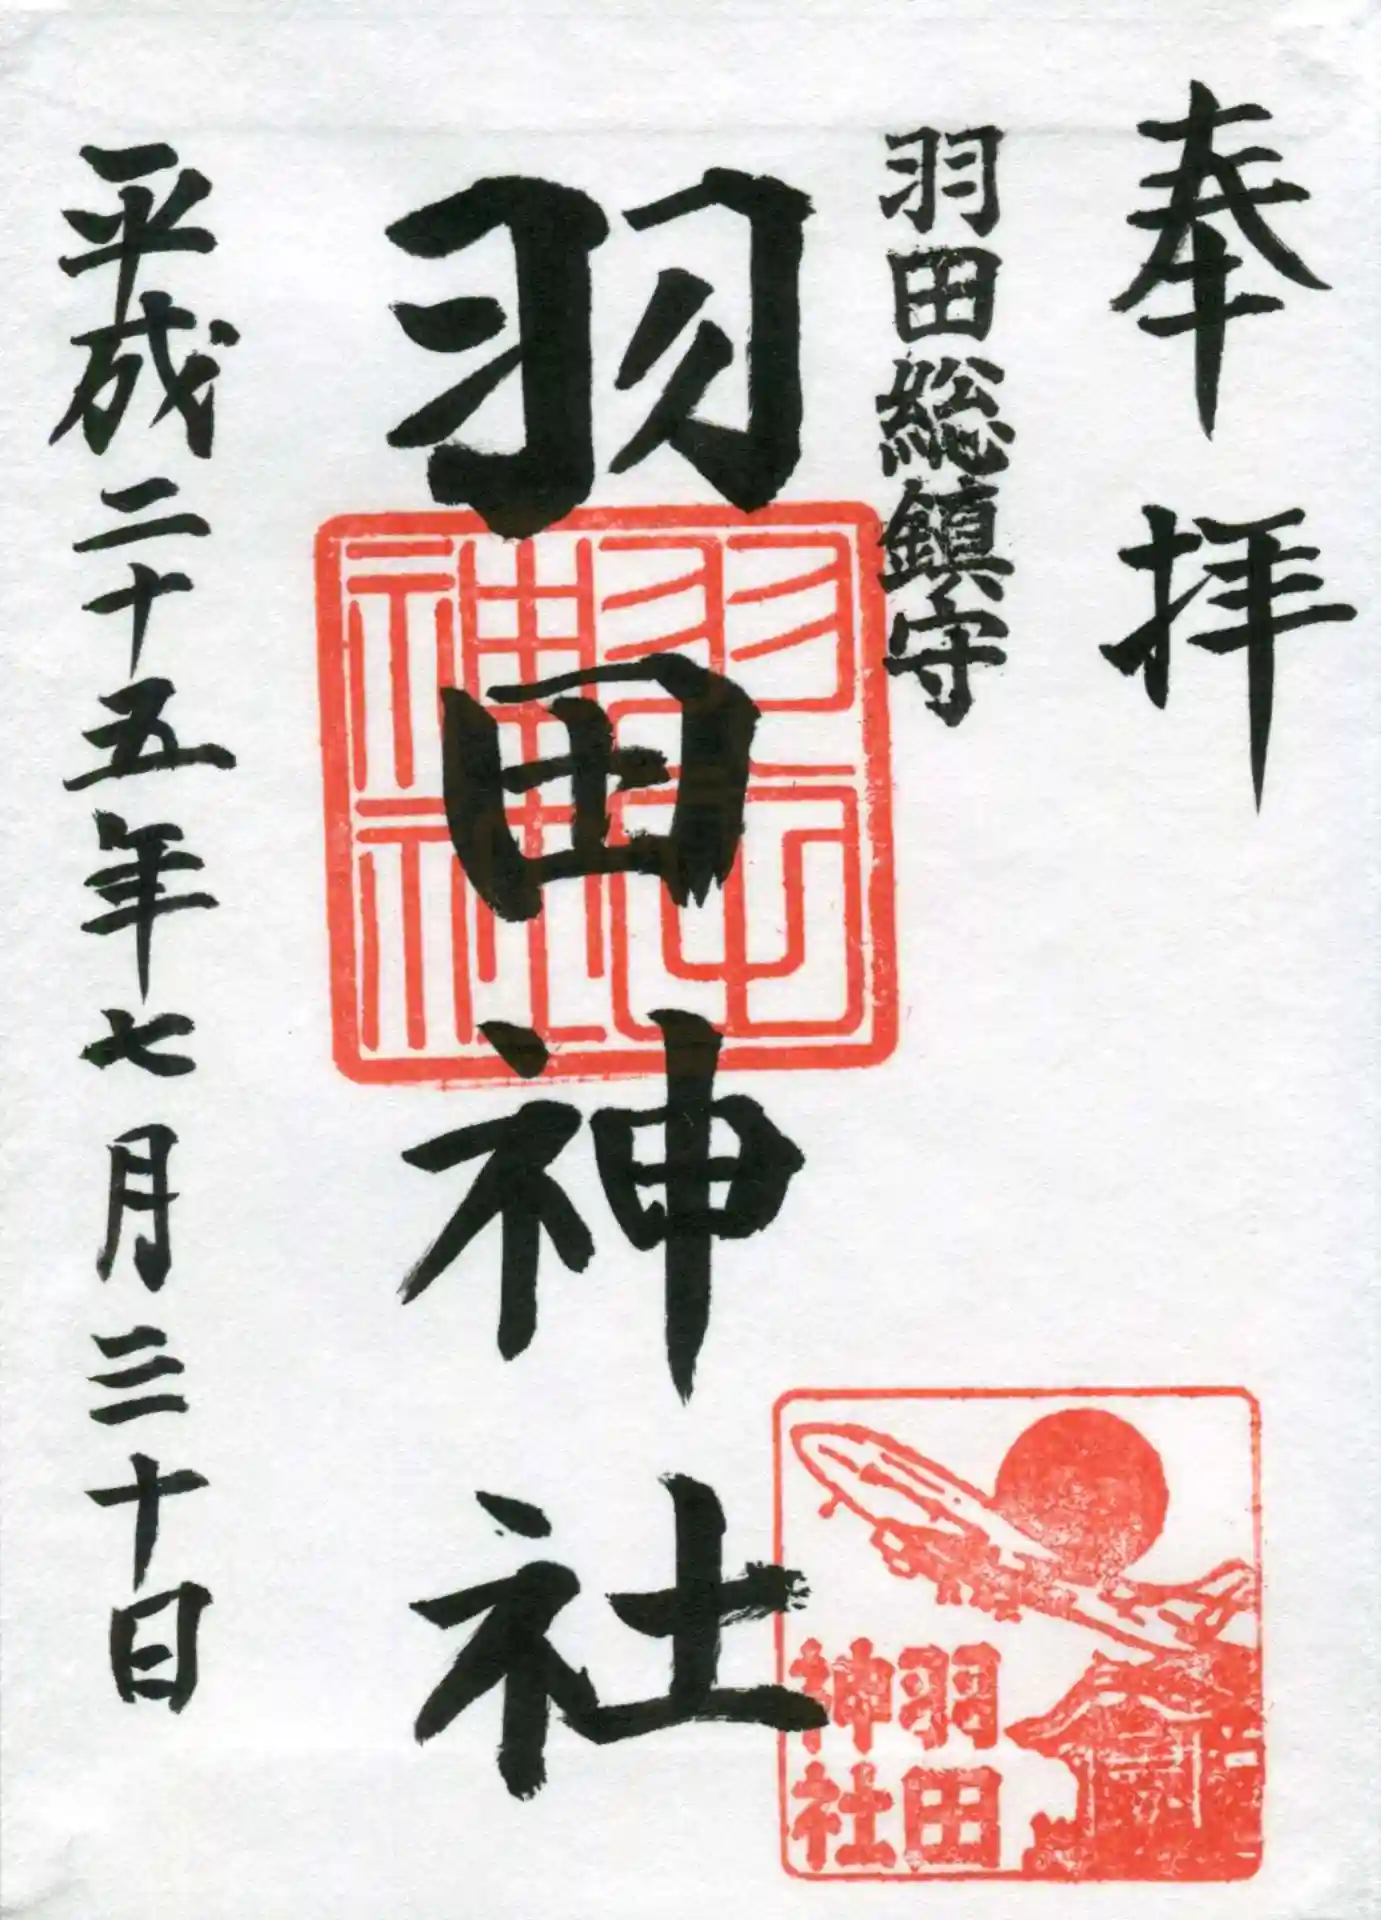 奉拝
羽田総鎮守
羽田神社
羽田神社
平成二十五年七月三十日
羽田
神社